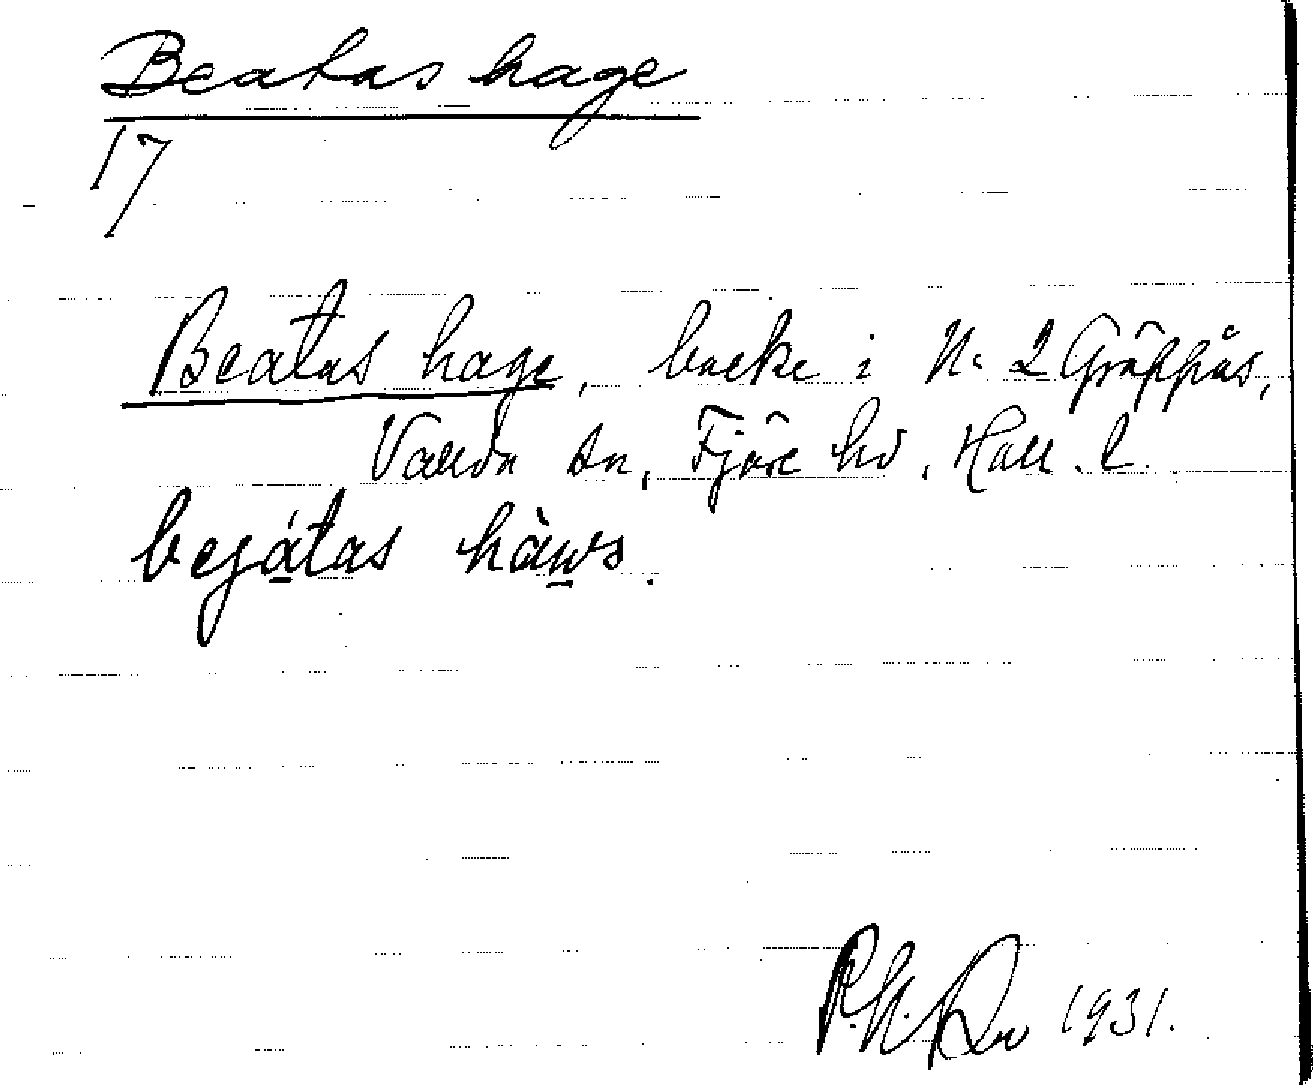 Beatas hage
17
Beatas hage, backe i N:o 2 Gräppås,
Vallda sn, Fjäre hd, Hall. l.
bejátas hàws.
1931.